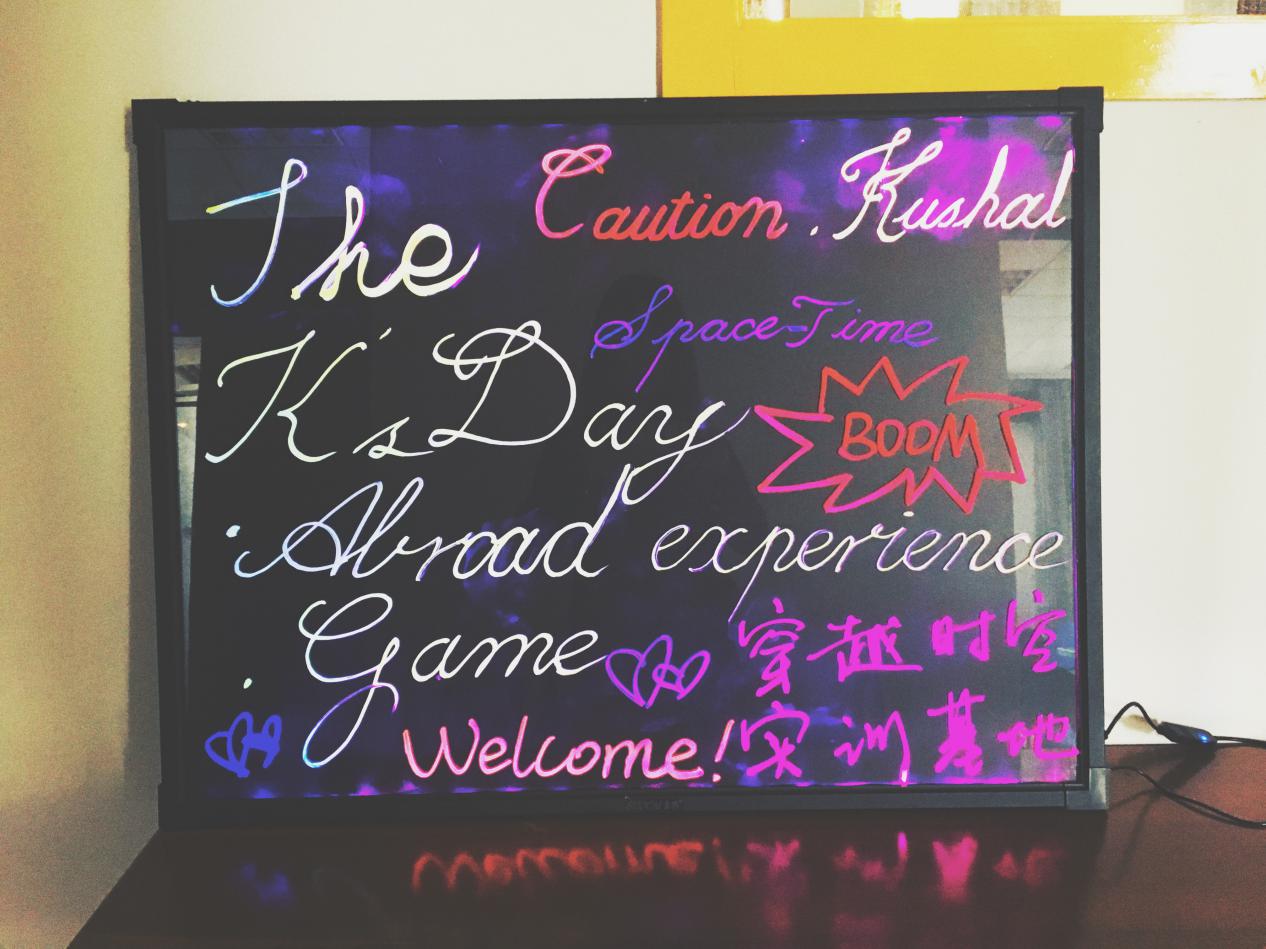 The
Caution. Kushal
Space-Time
K's Day
BOOM
Abroad experience
Game
穿越时空
Welcome!
实训基地